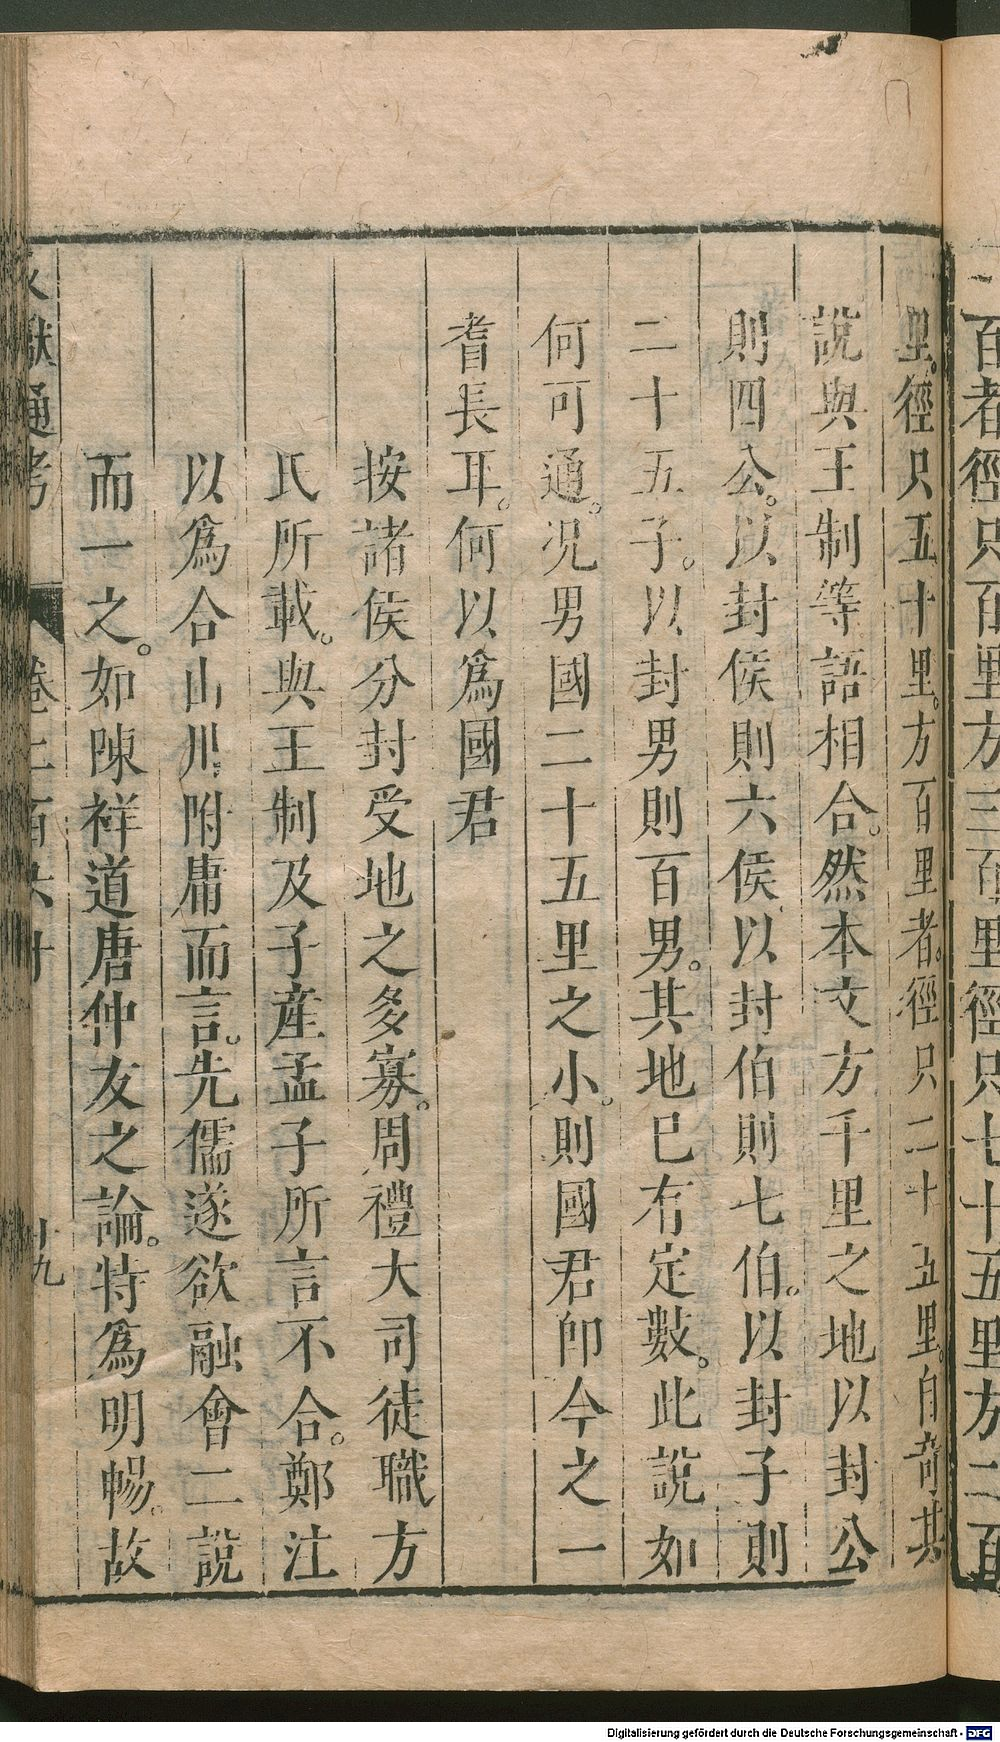 二百者徑只百里方三百里徑只七十五里方二百
里徑只五十里方百里者徑只二十五里自奇其
說與王制等語相合然本文方千里之地以封公
則四公以封侯則六侯以封伯則七伯以封子則
二十五子以封男則百男其地已有定數此說如
何可通況男國二十五里之小則國君卽今之一
耆長耳何以爲國君
按諸侯分封受地之多寡周禮大司徒職方
氏所載與王制及子產孟子所言不合鄭注
以爲合山川附庸而言先儒遂欲融會二說
而一之如陳祥道唐仲友之論特爲明暢故
獻通考 卷二百六十 十九
Digitalisierung gefördert durch die Deutsche Forschungsgemeinschaft - DFG